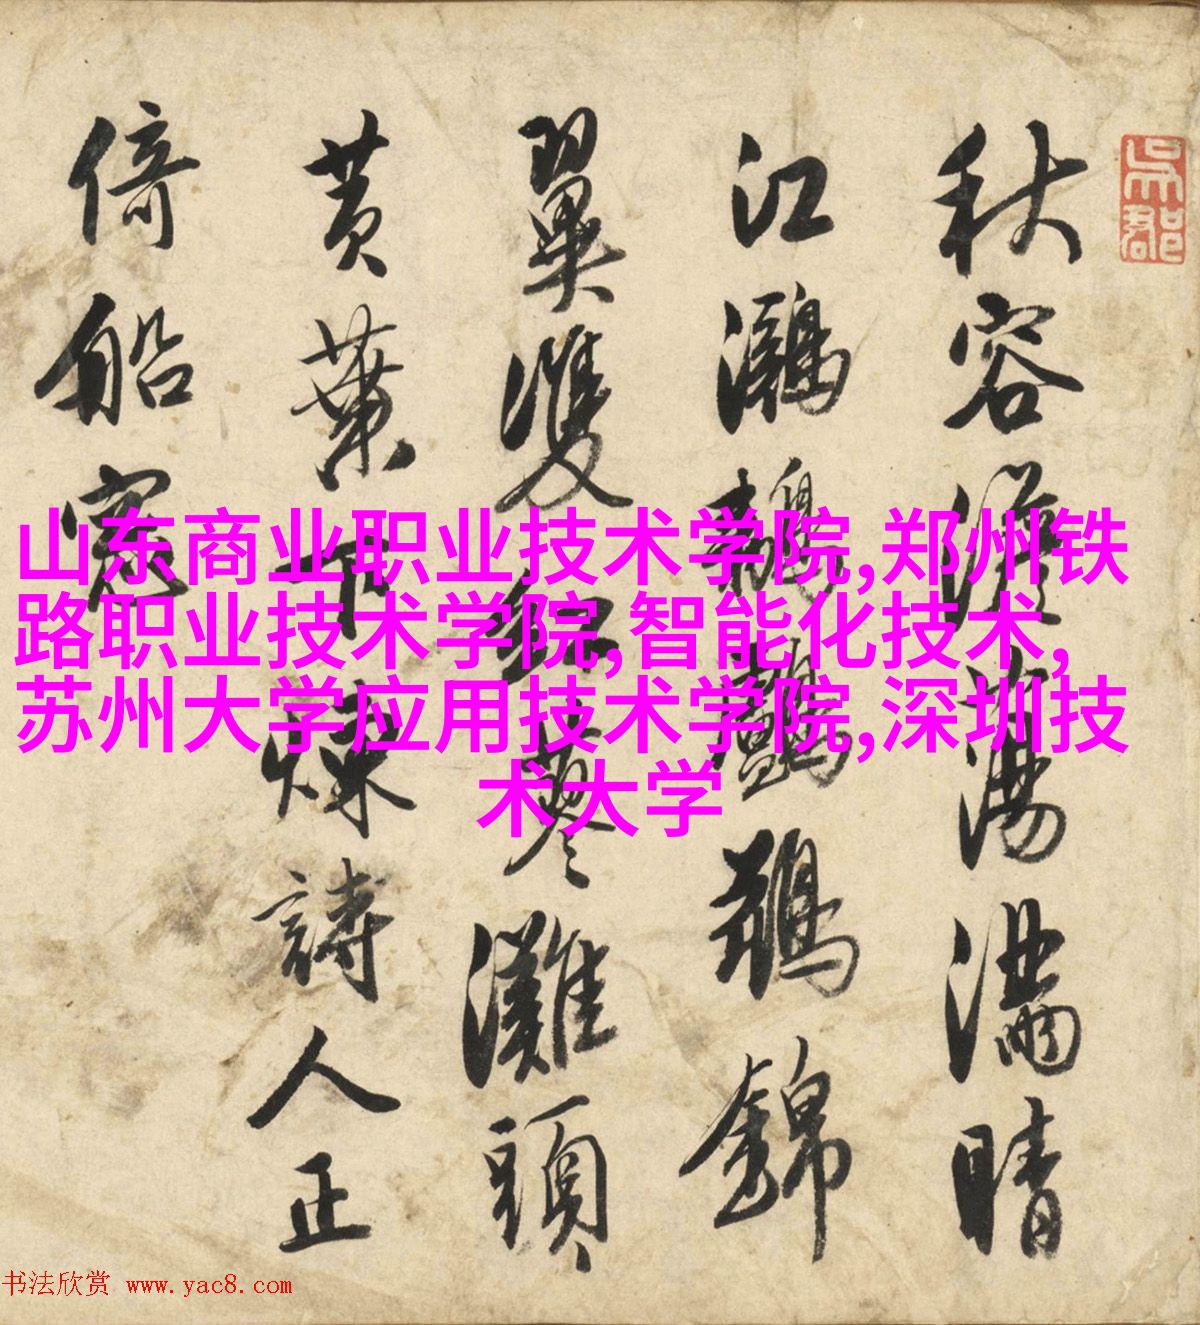 吳郡
秋容澹蕩滿晴
江鸂鶒錦
翼雙紅蓼灘頭
黃葉下煉詩人正
倚船窓
山东商业职业技术学院,郑州铁
路职业技术学院,智能化技术,
苏州大学应用技术学院,深圳技
术大学
书法欣赏 www.yac8.com